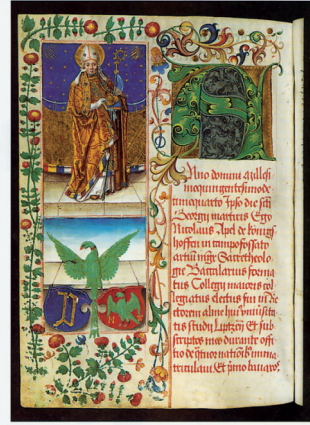 Anno domini Millesi
moquingentesimode
cimoquarto Ipso die scti
Georgii martiris Ego
Nicolaus Apel de konigs
hoffen in campofossato
artiū mgr Sacretheolo
gie Baccalarius forma
tus Collegij maioris col
legiatus electus fui in re
ctorem alme huiusvniūsita
tis studij Liptzen Et sub
scriptos meo durante offi
cio de qtuor nationib9 inma
triculaui Et primo bauaros